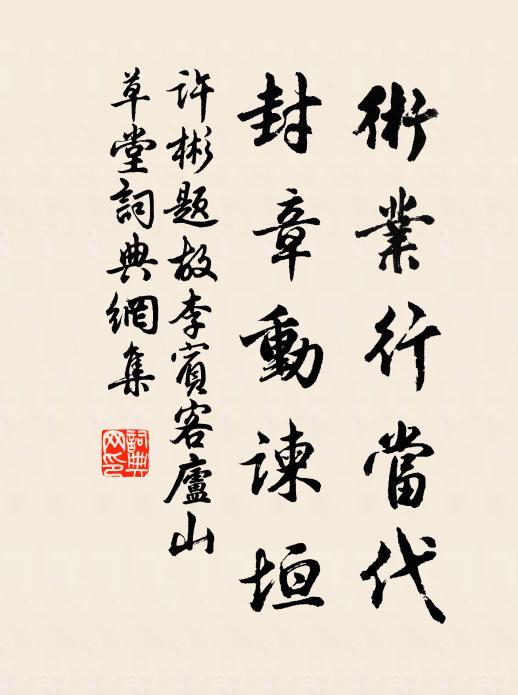 術業行當代
封章動諫垣
許彬題故李賓客廬山
草堂詞典網集
詞典
网印